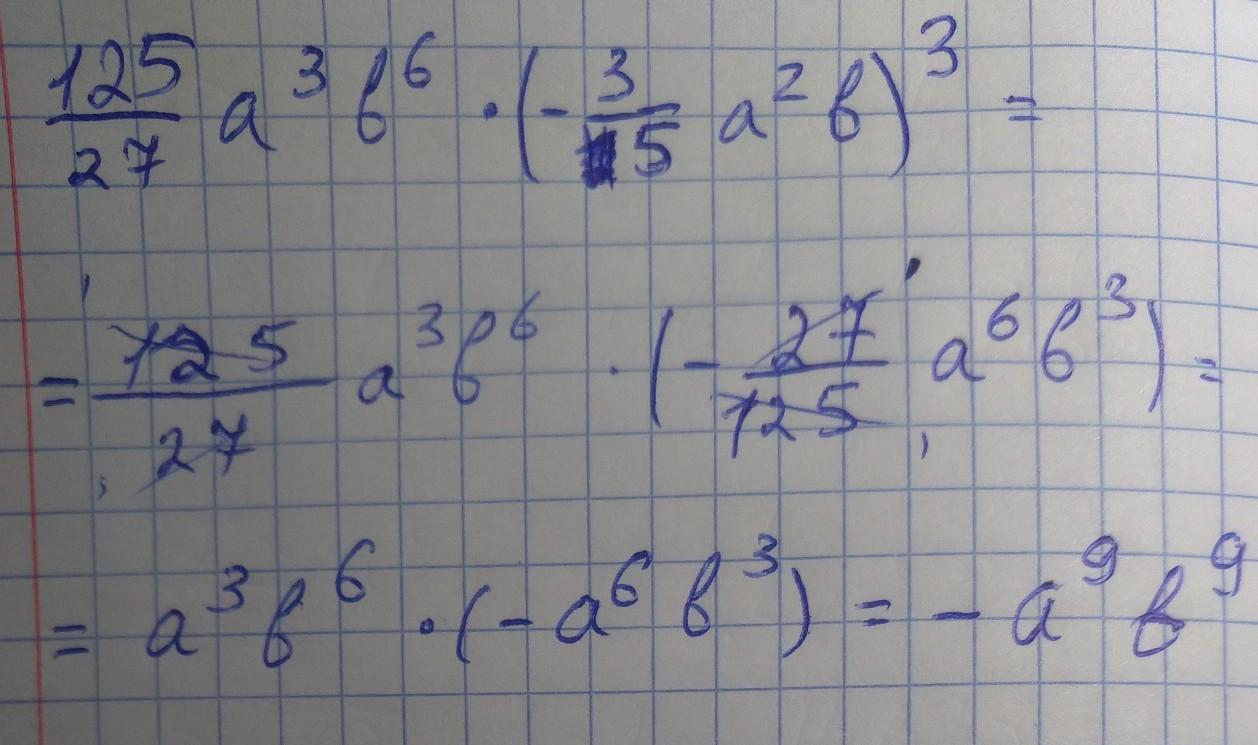 125/27 a³ b⁶ · (- 3/5 a² b)³ =
= 125/27 a³ b⁶ · (- 27/125 a⁶ b³) =
= a³ b⁶ · (- a⁶ b³) = - a⁹ b⁹